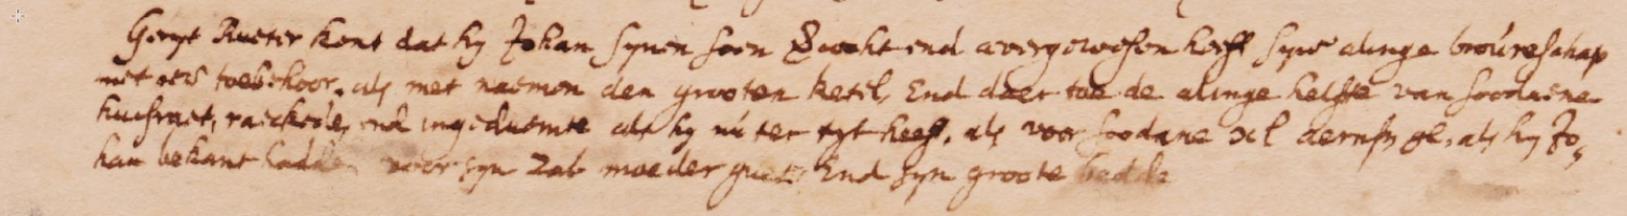 Geryt Rueter kent dat hy Johan synen soon Bruckt end avergewesen heeff syne alinge brouweschap
met oers toebehoor. als met naemen den grooten ketel, End daer toe de alinge helffte van soodaene
huisraet, raeckede, end ingeduemte als hy nu ter tyt heeff. als voor soodane xl aernsz gl. als hy Jo„
han bekant hadde voor syn zal moeder guet. End syn groote bedde